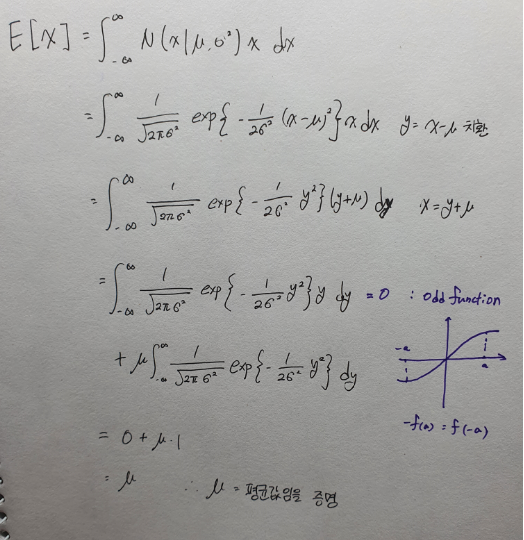 E[x] = ∫_{-∞}^{∞} N(x|μ,σ²) x dx
= ∫_{-∞}^{∞} 1/√(2πσ²) exp{ -1/(2σ²) (x-μ)² } x dx y = x-μ 치환
= ∫_{-∞}^{∞} 1/√(2πσ²) exp{ -1/(2σ²) y² } (y+μ) dy x = y+μ
= ∫_{-∞}^{∞} 1/√(2πσ²) exp{ -1/(2σ²) y² } y dy = 0 : odd function
+ μ∫_{-∞}^{∞} 1/√(2πσ²) exp{ -1/(2σ²) y² } dy
-a
a
-f(a) = f(-a)
= 0 + μ·1
= μ ∴ μ = 평균값임을 증명